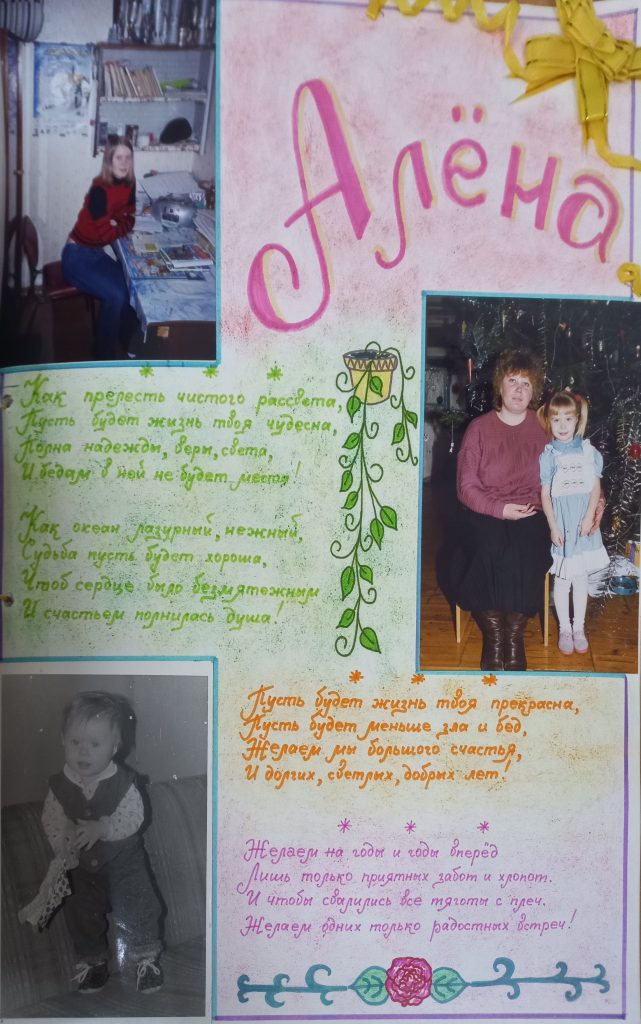 Алёна
Как прелесть чистого рассвета,
Пусть будет жизнь твоя чудесна,
Полна надежды, веры, света,
И бедам в ней не будет места!
Как океан лазурный, нежный,
Судьба пусть будет хороша,
Чтоб сердце было безмятежным
И счастьем полнилась душа!
Пусть будет жизнь твоя прекрасна,
Пусть будет меньше зла и бед,
Желаем мы большого счастья,
И долгих, светлых, добрых лет!
Желаем на годы и годы вперёд
Лишь только приятных забот и хлопот.
И чтобы свалились все тяготы с плеч.
Желаем одних только радостных встреч!